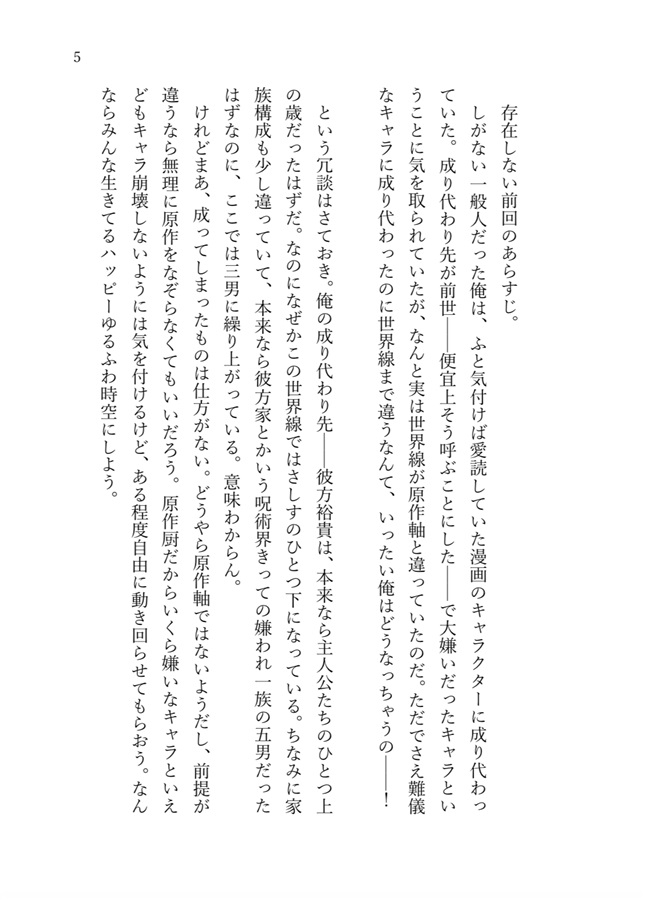 5
存在しない前回のあらすじ。
しがない一般人だった俺は、ふと気付けば愛読していた漫画のキャラクターに成り代わっ
ていた。成り代わり先が前世――便宜上そう呼ぶことにした――で大嫌いだったキャラとい
うことに気を取られていたが、なんと実は世界線が原作軸と違っていたのだ。ただでさえ難儀
なキャラに成り代わったのに世界線まで違うなんて、いったい俺はどうなっちゃうの――！
という冗談はさておき。俺の成り代わり先――彼方裕貴は、本来なら主人公たちのひとつ上
の歳だったはずだ。なのになぜかこの世界線ではさしすのひとつ下になっている。ちなみに家
族構成も少し違っていて、本来なら彼方家とかいう呪術界きっての嫌われ一族の五男だった
はずなのに、ここでは三男に繰り上がっている。意味わからん。
けれどまあ、成ってしまったものは仕方がない。どうやら原作軸ではないようだし、前提が
違うなら無理に原作をなぞらなくてもいいだろう。原作厨だからいくら嫌いなキャラといえ
どもキャラ崩壊しないようには気を付けるけど、ある程度自由に動き回らせてもらおう。なん
ならみんな生きてるハッピーゆるふわ時空にしよう。